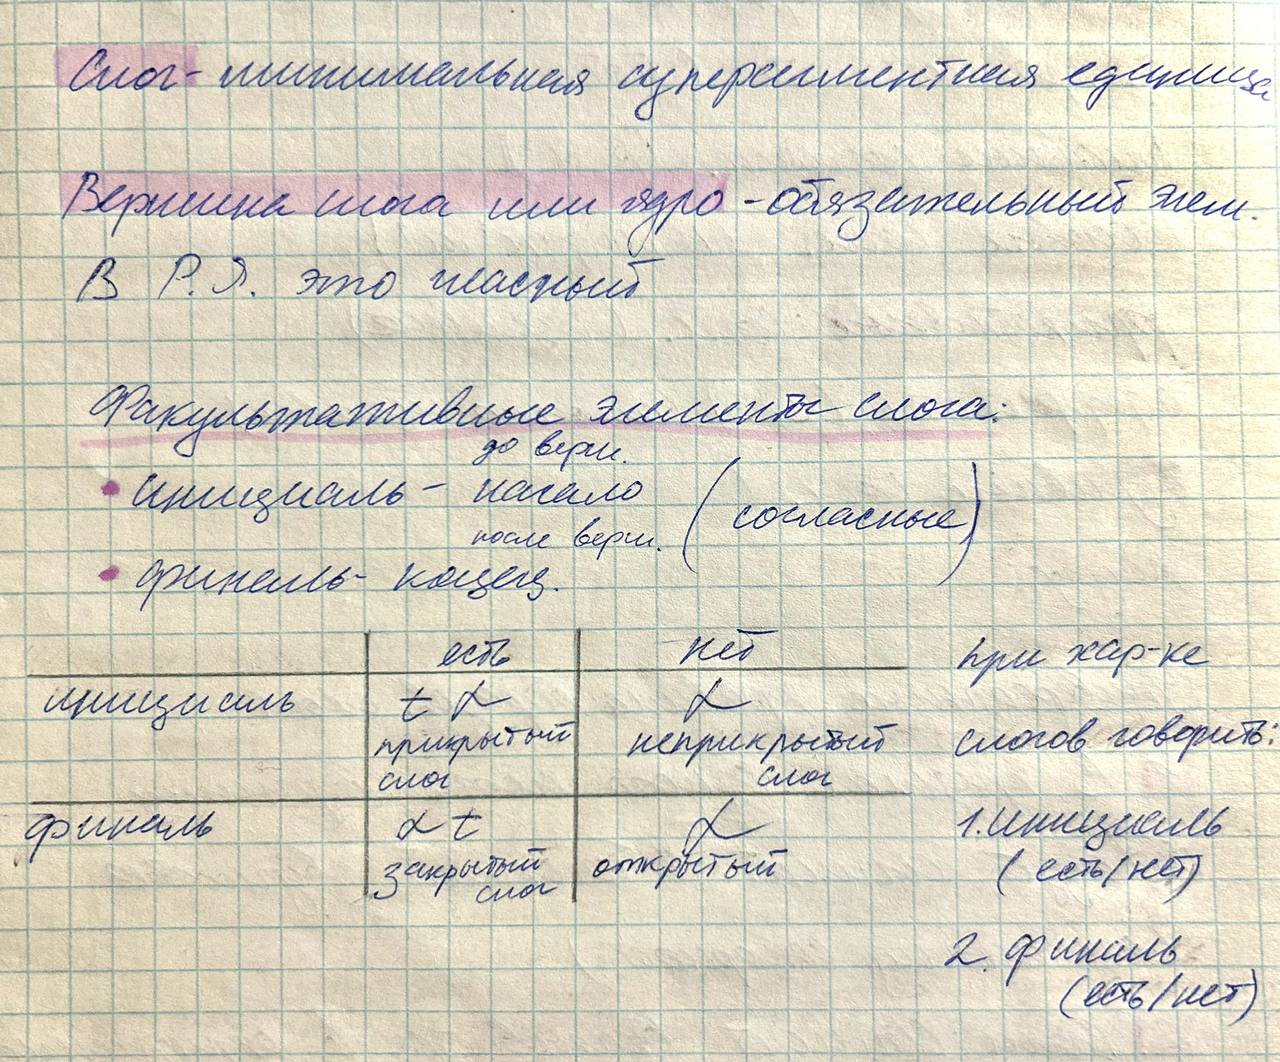 Слог - минимальная суперсегментная единица
Вершина слога или ядро - обязательный элем.
В Р.Я. это гласный
Факультативные элементы слога:
до верш.
• инициаль - начало (согласные)
после верш.
• финаль - конец.
есть нет
инициаль t α α
прикрытый слог неприкрытый слог
финаль α t α
закрытый слог открытый
при хар-ке
слогов говорить:
1. инициаль
(есть/нет)
2. финаль
(есть/нет)